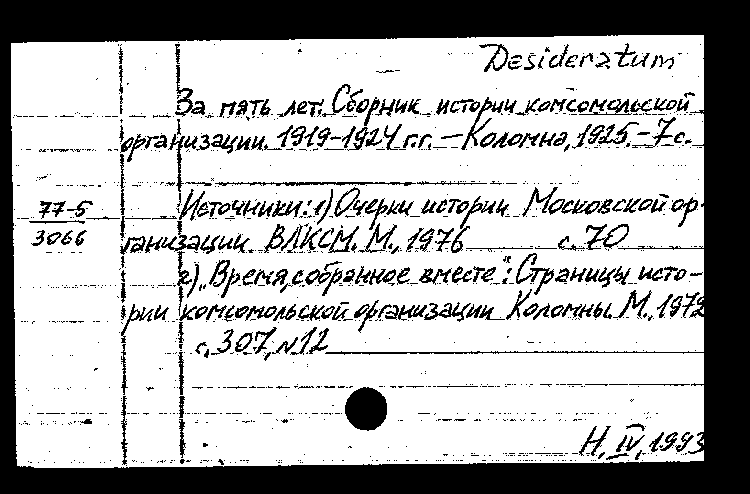 Desideratum
За пять лет. Сборник истории комсомольской
организации. 1919-1924 г.г. — Коломна, 1925. - 7 с.
77-5
3066
Источники: 1) Очерки истории Московской ор-
ганизации ВЛКСМ. М., 1976 с. 70
2) „Время, собранное вместе": Страницы исто-
рии комсомольской организации Коломны. М., 1972
с. 307, №12
Н, IV, 1993